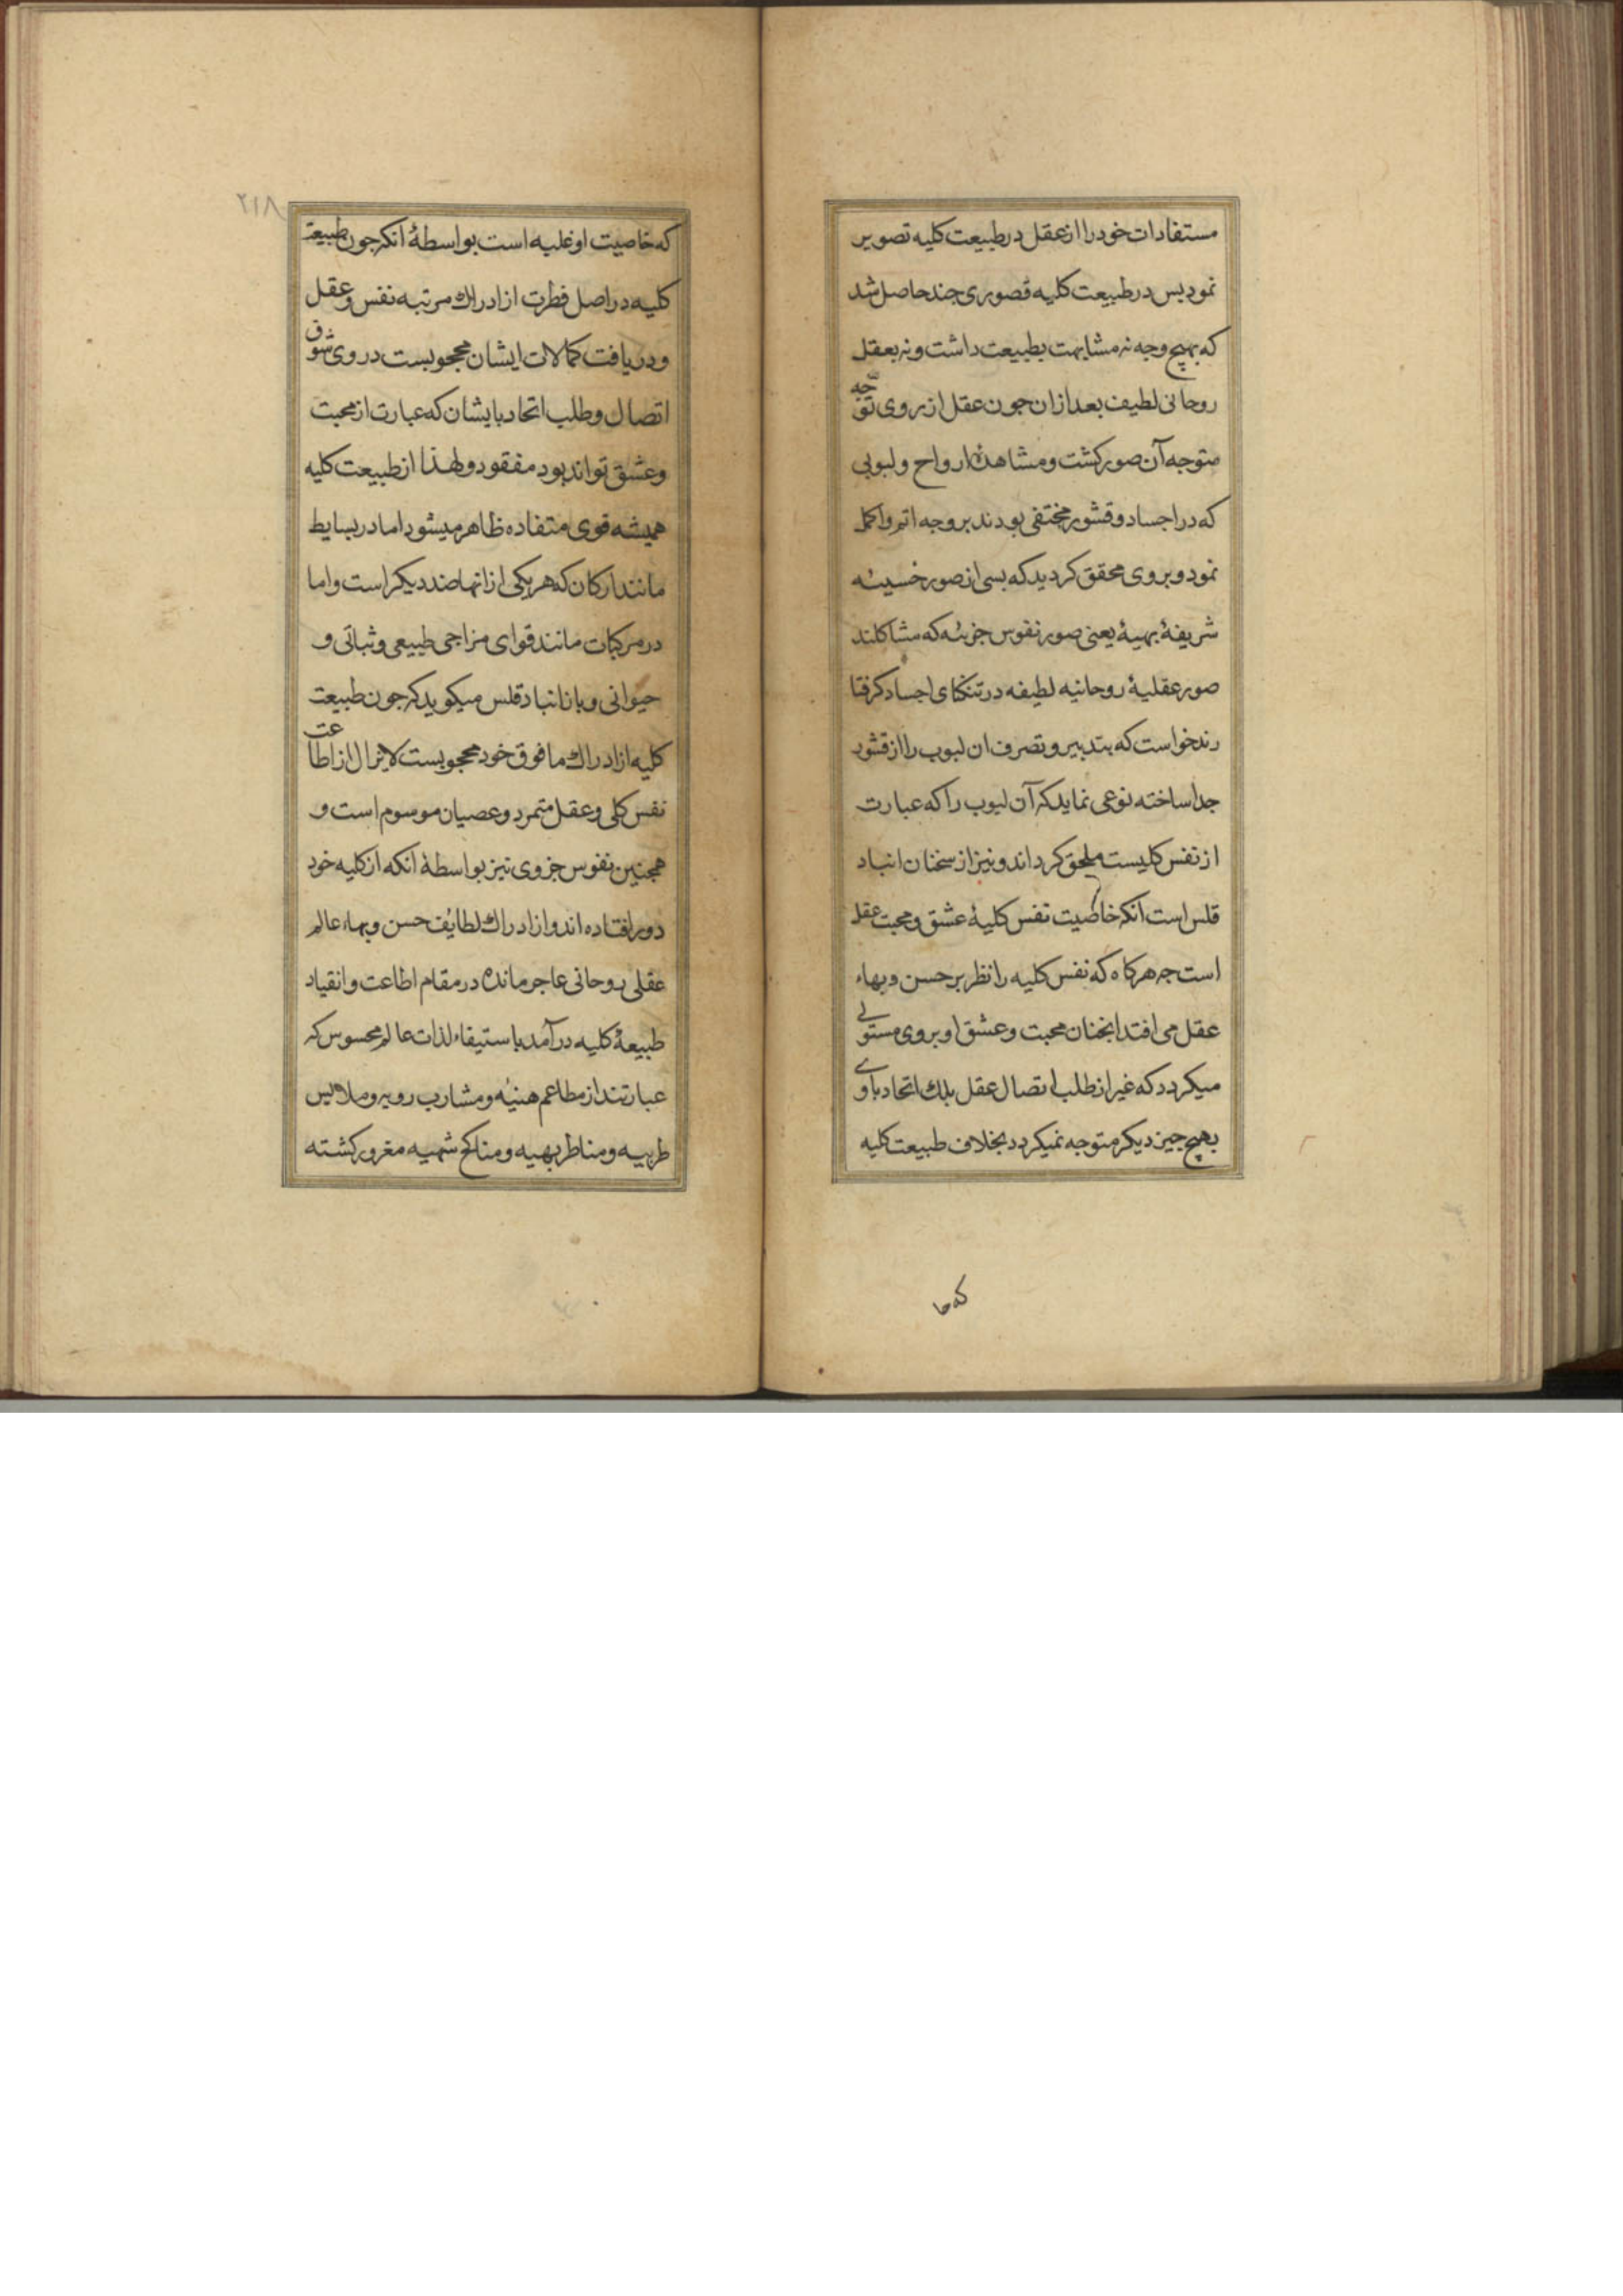 مستفادات خود را از عقل در طبیعت کلیه تصویر
نمود پس در طبیعت کلیه قصوری جند حاصل شد
که بهیچ وجه نه مشابهت بطبیعت داشت و نه بعقل
روحانی لطیف بعد ازان جون عقل از روی توجه
متوجه آن صور کشت و مشاهدهٔ ارواح و لبوبی
که در اجساد و قشور مختفی بودند بر وجه اتم و اکمل
نمود و بر وی محقق کردید که بسی از صور خسیسه
شریفهٔ بهیهٔ یعنی صور نفوس جزئیه که مشاکلند
صور عقلیهٔ روحانیه لطیفه در تنکنای اجساد کرفتا
رند خواست که بتدبیر و تصرف ان لبوب را از قشور
جدا ساخته نوعی نماید که آن لبوب را که عبارت
از نفس کلیست ملحق کرداند و نیز از سخنان انباد
قلس است آنکه خاصیت نفس کلیهٔ عشق و محبت عقل
است جه هر کاه که نفس کلیه را نظر بر حسن و بهاء
عقل می افتد انجنان محبت و عشق او بر وی مستولی
میکردد که غیر از طلب اتصال عقل بلك اتحاد با وی
بهیچ جیز دیکر متوجه نمیکردد بخلاف طبیعت کلیه
که خا
۲۱۸
که خاصیت او غلبه است بواسطهٔ انکه جون طبیعت
کلیه در اصل فطرت از ادراك مرتبه نفس و عقل
و دریافت کمالات ایشان محجوبست در وی شوق
اتصال و طلب اتحاد بایشان که عبارت از محبت
و عشق تواند بود مفقود و لهذا از طبیعت کلیه
همیشه قوی متفاده ظاهر میشود اما در بسایط
مانند ارکان که هر یکی از انها ضد دیکر است و اما
در مرکبات مانند قوای مزاجی طبیعی و نباتی و
حیوانی و باز انبادقلس میکوید که جون طبیعت
کلیه از ادراك ما فوق خود محجوبست لایزال از اطاعت
نفس کلی و عقل متمرد و عصیان موسوم است و
همجنین نفوس جزوی نیز بواسطهٔ آنکه از کلیه خود
دور افتاده اند و از ادراك لطایف حسن و بهاء عالم
عقلی روحانی عاجز مانده در مقام اطاعت و انقیاد
طبیعهٔ کلیه در آمد باستیفاء لذات عالم محسوس که
عبارتند از مطاعم هنیّه و مشارب رویه و ملابس
طریه و مناظر بهیه و مناکح شهیه مغرور کشته